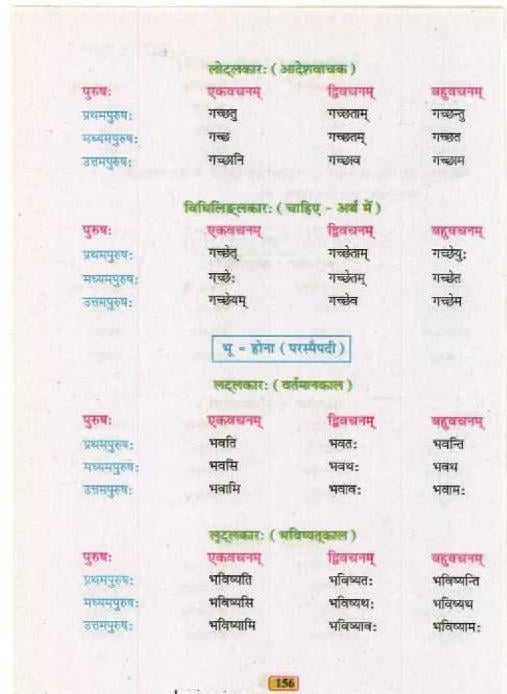 लोट्लकारः ( आदेशवाचक )
पुरुषः एकवचनम् द्विवचनम् बहुवचनम्
प्रथमपुरुषः गच्छतु गच्छताम् गच्छन्तु
मध्यमपुरुषः गच्छ गच्छतम् गच्छत
उत्तमपुरुषः गच्छानि गच्छाव गच्छाम
विधिलिङ्लकारः ( चाहिए - अर्थ में )
पुरुषः एकवचनम् द्विवचनम् बहुवचनम्
प्रथमपुरुषः गच्छेत् गच्छेताम् गच्छेयुः
मध्यमपुरुषः गच्छेः गच्छेतम् गच्छेत
उत्तमपुरुषः गच्छेयम् गच्छेव गच्छेम
भू = होना ( परस्मैपदी )
लट्लकारः ( वर्तमानकाल )
पुरुषः एकवचनम् द्विवचनम् बहुवचनम्
प्रथमपुरुषः भवति भवतः भवन्ति
मध्यमपुरुषः भवसि भवथः भवथ
उत्तमपुरुषः भवामि भवावः भवामः
लृट्लकारः ( भविष्यत्काल )
पुरुषः एकवचनम् द्विवचनम् बहुवचनम्
प्रथमपुरुषः भविष्यति भविष्यतः भविष्यन्ति
मध्यमपुरुषः भविष्यसि भविष्यथः भविष्यथ
उत्तमपुरुषः भविष्यामि भविष्यावः भविष्यामः
156